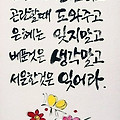 곤란할때 도와주고
은혜는 잊지말고
베푼것은 생각말고
서운한것은 잊어라.